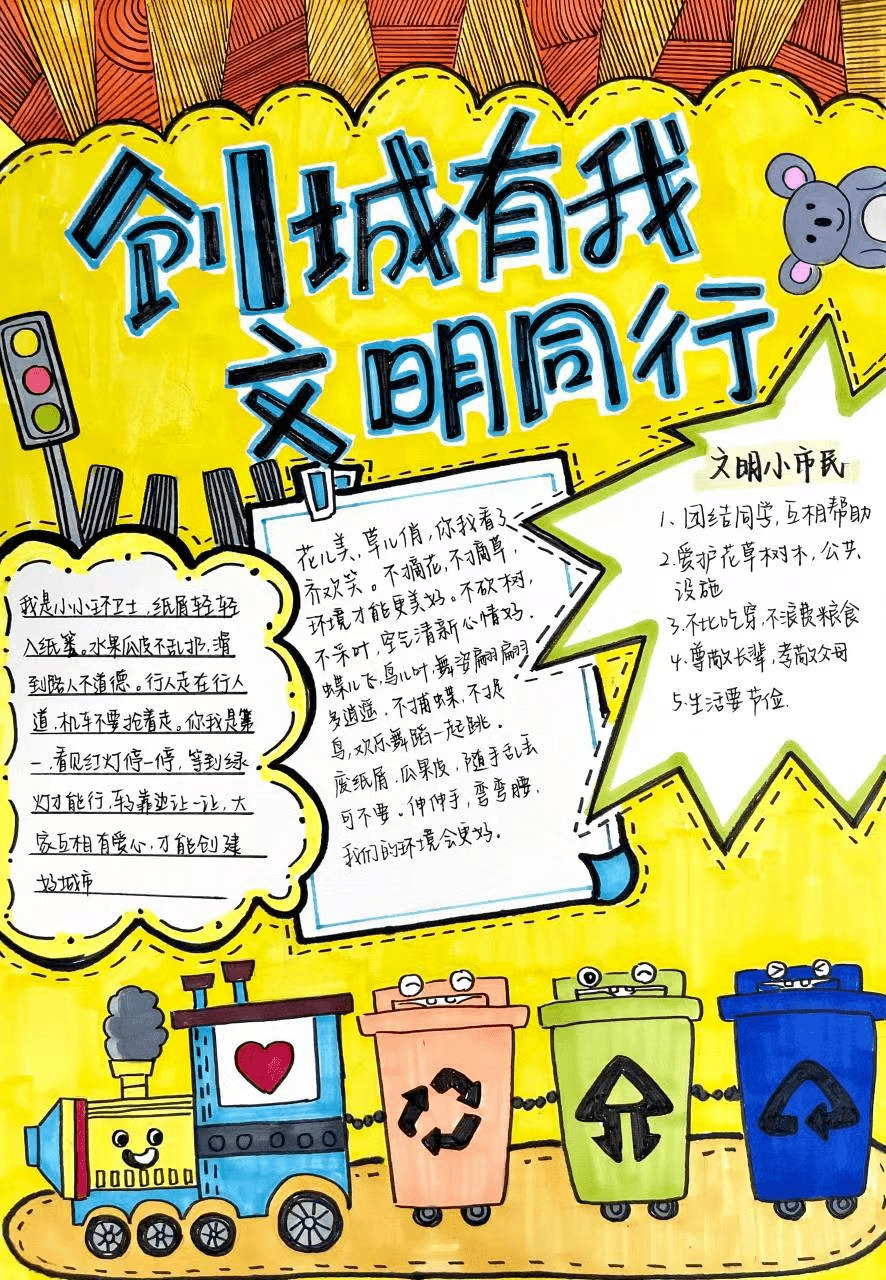 创城有我
文明同行
我是小小环卫士，纸屑轻轻
入纸篓。水果瓜皮不乱扔，滑
到路人不道德。行人走在行人
道，机车不要抢着走。你我是第
一，看见红灯停一停，等到绿
灯才能行，转靠边让一让，大
家互相有爱心，才能创建
好城市
花儿美，草儿俏，你我看了
齐欢笑。不摘花，不摘草，
环境才能更美好。不砍树，
不采叶，空气清新心情好。
蝶儿飞，鸟儿叶，舞姿翩翩
多逍遥。不捕蝶，不捉
鸟，欢乐舞蹈一起跳。
废纸屑，瓜果皮，随手乱丢
可不要。伸伸手，弯弯腰，
我们的环境会更好。
文明小市民
1、团结同学，互相帮助
2.爱护花草树木，公共
设施
3.不比吃穿，不浪费粮食
4.尊敬长辈，孝敬父母
5.生活要节俭.